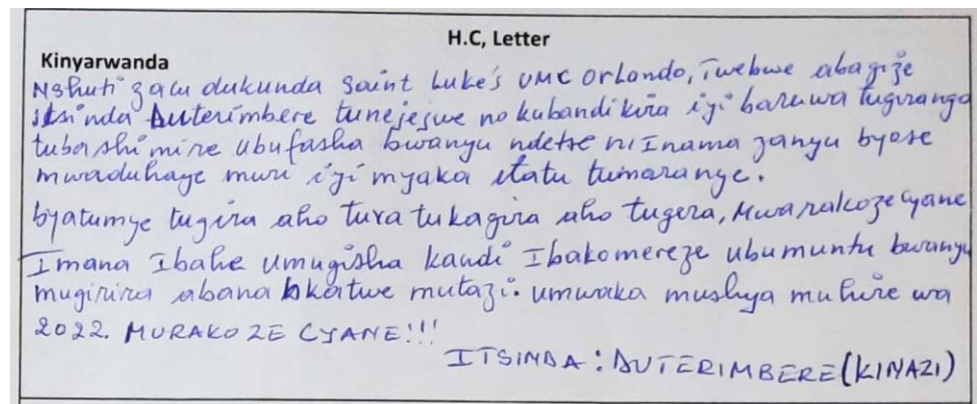 H.C, Letter
Kinyarwanda
Nshuti zacu dukunda Saint Luke's UMC Orlando, Twebwe abagize
itsinda Duterimbere tunejejwe no kubandikira iyi baruwa tugirango
tubashimire ubufasha bwanyu ndetse ni Inama zanyu byose
mwaduhaye muri iyi myaka itatu tumaranye.
byatumye tugira aho tuva tukagira aho tugera, Mwarakoze cyane
Imana Ibahe umugisha kandi Ibakomereze ubumuntu bwanyu
mugirira abana bkatwe mutazi. umwaka mushya muhire wa
2022. MURAKOZE CYANE!!!
ITSINDA: DUTERIMBERE (KINAZI)